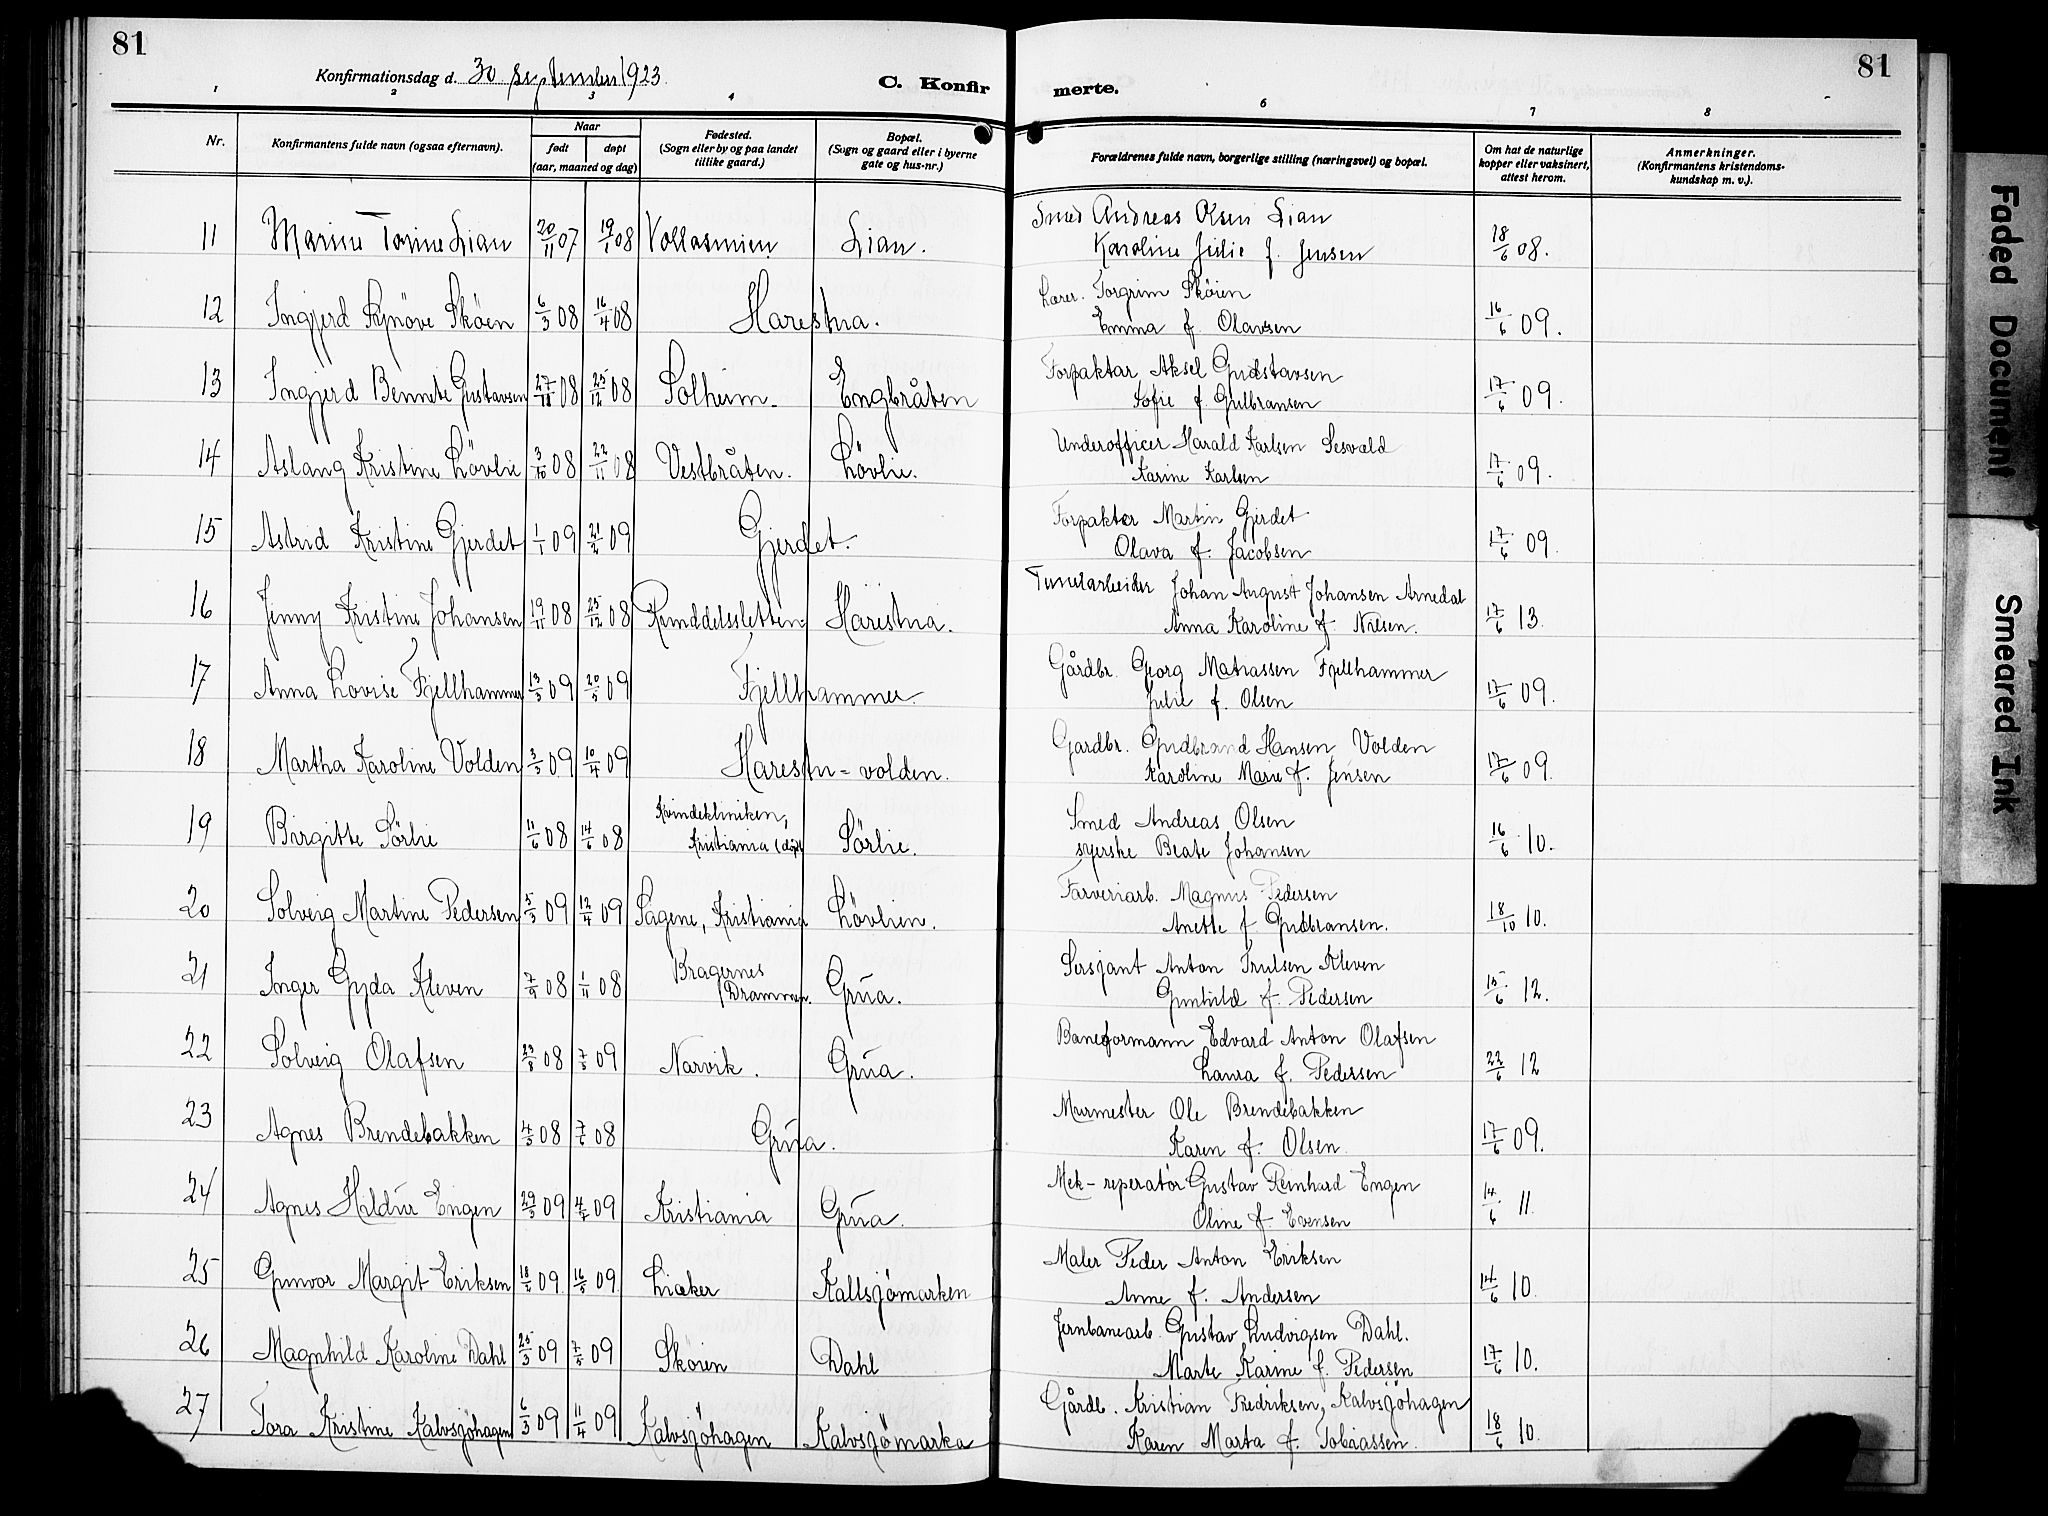 81
Konfirmationsdag d. 30 september 1923.
C. Konfir merte.
81
1 2 3 4 6 7 8
Nr. Konfirmantens fulde navn (ogsaa efternavn). Naar født døpt (aar, maaned og dag) Fødested. (Sogn eller by og paa landet tillike gaard.) Bopæl. (Sogn og gaard eller i byerne gate og hus-nr.) Forældrenes fulde navn, borgerlige stilling (næringsvei) og bopæl. Om hat de naturlige kopper eller vaksinert, attest herom. Anmerkninger. (Konfirmantens kristendoms-kundskap m. v.).
11 Marine Torine Lian 20/11 07 19/1 08 Lian. Smed Andreas Olsen Lian
Karoline Julie f. Jensen 18/6 08.
12 Ingjerd Synöve Sköen 6/3 08 16/4 08 Harestua. Lærer. Torgrim Sköien
Emma f. Olavsen 16/6 09.
13 Ingjerd Bennete Gustavsen 27/10 08 25/12 08 Solheim. Engbråten Forpaktar Aksel Gudstavsen
Sofie f. Gulbransen 17/6 09.
14 Aslaug Kristine Lövlie 3/10 08 22/11 08 Vestbråten. Lövlie. Underofficer Harald Karlsen Sesvald
Karine Karlsen 17/6 09.
15 Astrid Kristine Gjerdet 1/1 09 21/2 09 Gjerdet. Forpakter Martin Gjerdet
Olava f. Jacobsen 17/6 09.
16 Jenny Kristine Johansen 19/11 08 25/12 08 Harestua. Tunelarbeider Johan August Johansen Arnedal
Anna Karoline f. Nilsen. 17/6 13.
17 Anna Lovise Fjellhammer 13/3 09 20/5 09 Fjellhammer. Gårdbr. Georg Matiassen Fjellhammer
Julie f. Olsen 17/6 09.
18 Martha Karoline Volden 3/3 09 10/4 09 Harestu-volden. Gardbr. Gudbrand Hansen Volden
Karoline Marie f. Jensen 17/6 09.
19 Birgitte Sörlie 11/6 08 14/6 08 Kvindekliniken,
Kristiania (döpt Sörlie. Smed Andreas Olsen
syerske Beate Johansen 16/6 10.
20 Solveig Martine Pedersen 5/3 09 12/4 09 Sagene, Kristiania Lövlien. Farveriarb. Magnus Pedersen
Anette f Gudbransen. 18/10 10.
21 Inger Gyda Kleven 7/9 08 1/11 08 Bragernes
(Drammen. Grua. Sersjant Anton Trulsen Kleven
Gunhild f. Pedersen 15/6 12.
22 Solveig Olafsen 23/8 08 7/5 09 Narvik. Grua. Baneformann Edvard Anton Olafsen
Laura f. Pedersen 22/6 12
23 Agnes Brendebakken 4/3 08 7/6 08 Grua. Murmester Ole Brendebakken
Karen f. Olsen. 17/6 09.
24 Agnes Hildur Engen 29/3 09 09 Kristiania Grua. Mek-reperatör Gustav Reinhard Engen
Oline f. Evensen 14/6 11.
25 Gunvor Margit Eriksen 18/2 09. 16/5 09. Liæker Kallsjömarken Maler Peder Anton Eriksen
Anne f. Andersen 14/6 10.
26 Magnhild Karoline Dahl 25/3 09 7/5 09 Sköien Dahl Jernbanearb. Gustav Ludvigsen Dahl.
Marte Karine f. Pedersen 17/6 10.
27 Tora Kristine Kalvsjöhagen 6/3 09 11/4 09 Kalvsjöhagen Kalvsjömarka Gårdb. Kristian Fredriksen, Kalvsjöhagen
Karen Marta f. Tobiassen. 18/6 10.
Faded Document
Smeared Ink